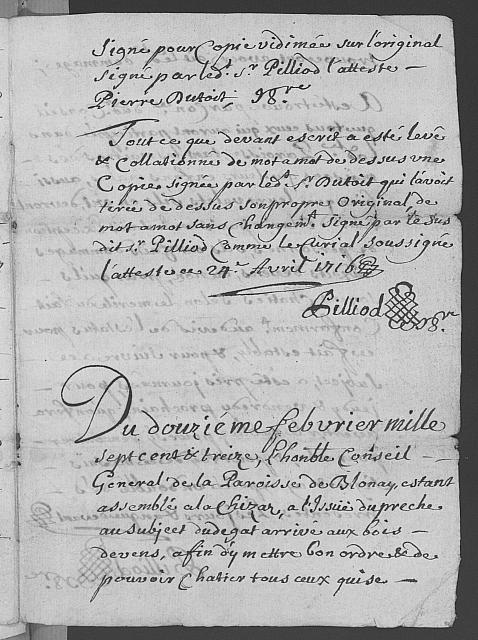 Signé pour Copie vidimée sur l'original
signé par led.t S.r Pilliod l'atteste —
Pierre Dutoit
Tout ce que devant escrit a esté levé
& Collationné de mot a mot de dessus une
Copie signée par led.t S.r Dutoit qui l'avoit
tirée de dessus son propre Original de
mot a mot sans Changem.t signé par le sus
dit S.r Pilliod Comme le Curial soussigné
l'atteste ce 24.e Avril 1716
Pilliod
Du douziéme febvrier mille
sept cent & treize, l'honble Conseil —
General de la Paroisse de Blonay, estant
assemblé a la Chizaz, a l'Issuë du preche
au subject du degat arrivé aux bois —
devens, afin d'y mettre bon ordre & de
pouvoir Chatier tous ceux qui se —